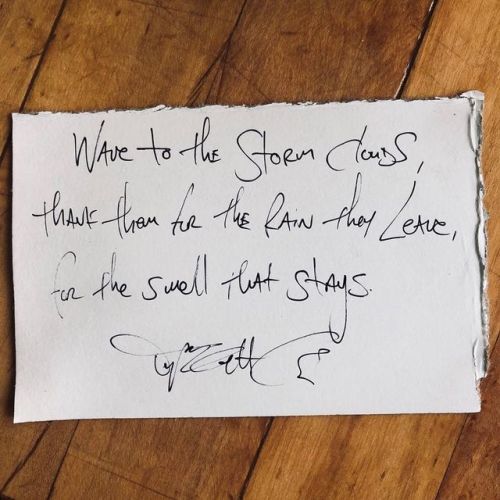 Wave to the Storm Clouds,
thank them for the Rain they Leave,
for the smell that stays.